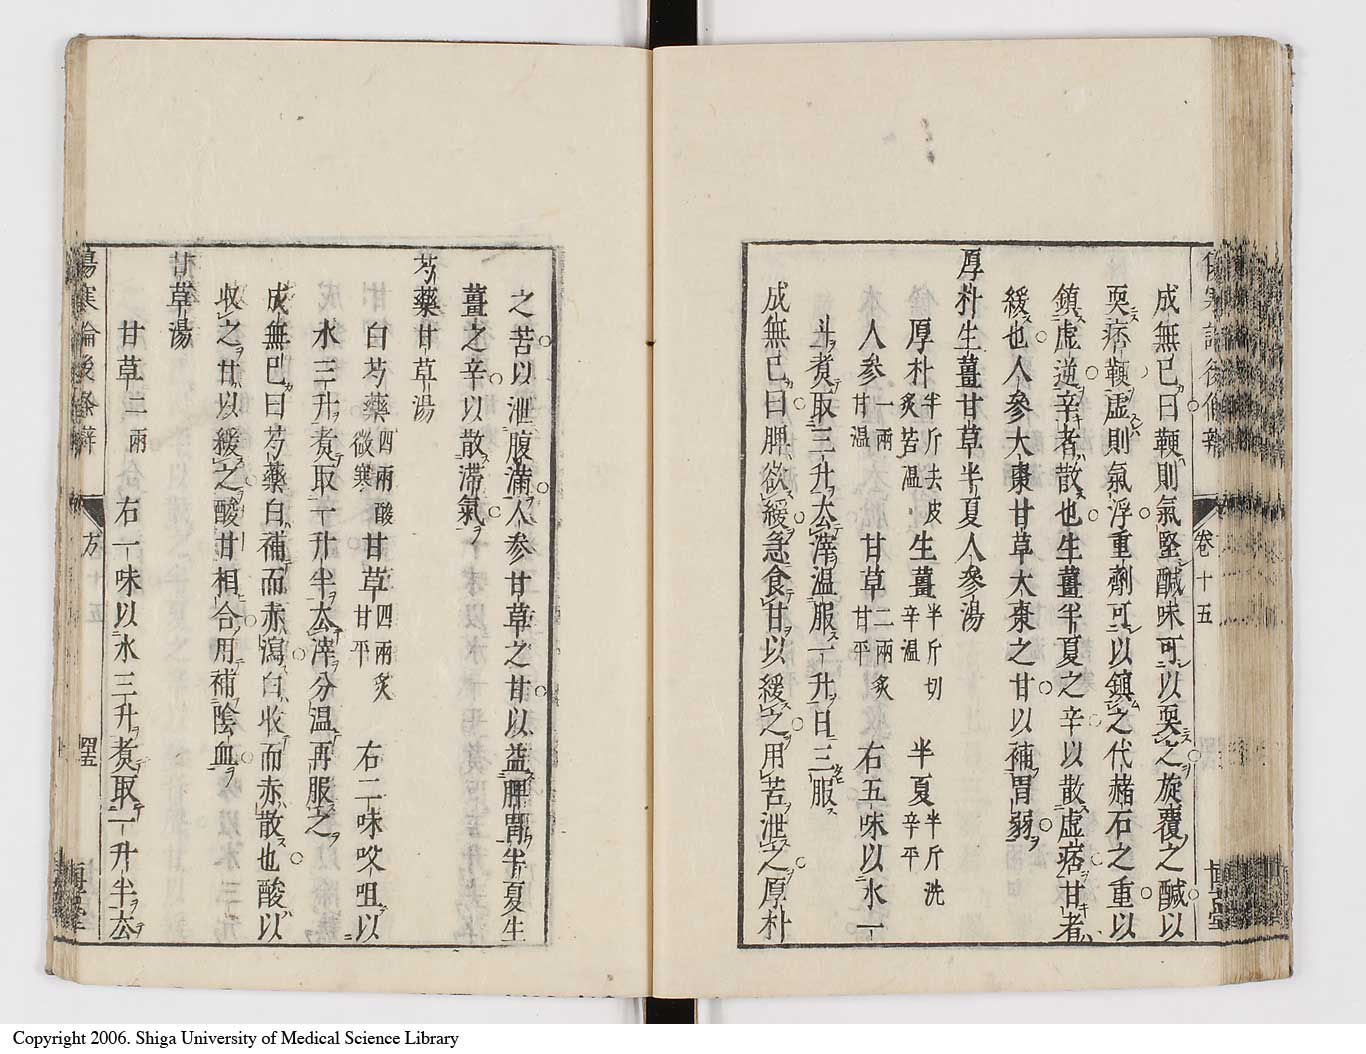 卷十五
成無已曰鞕則氣堅鹹味可以耎之旋覆之鹹以
耎痞鞕虛則氣浮重劑可以鎮之代赭石之重以
鎮虛逆辛者散也生薑半夏之辛以散虛痞甘者
緩也人參大棗甘草大棗之甘以補胃弱
厚朴生薑甘草半夏人參湯
厚朴半斤去皮炙苦溫 生薑半斤切辛溫 半夏半斤洗辛平
人參一兩甘溫 甘草二兩炙甘平 右五味以水一
斗煑取三升去滓温服一升日三服
成無已曰脾欲緩急食甘以緩之用苦泄之厚朴
之苦以泄腹滿人參甘草之甘以益脾胃半夏生
薑之辛以散滯氣
芍藥甘草湯
白芍藥四兩酸微寒 甘草四兩炙甘平 右二味㕮咀以
水三升煑取一升半去滓分温再服之
成無巳曰芍藥白補而赤瀉白收而赤散也酸以
收之甘以緩之酸甘相合用補陰血
甘草湯
甘草二兩 右一味以水三升煑取一升半去
傷寒論後條辨
方
Copyright 2006. Shiga University of Medical Science Library